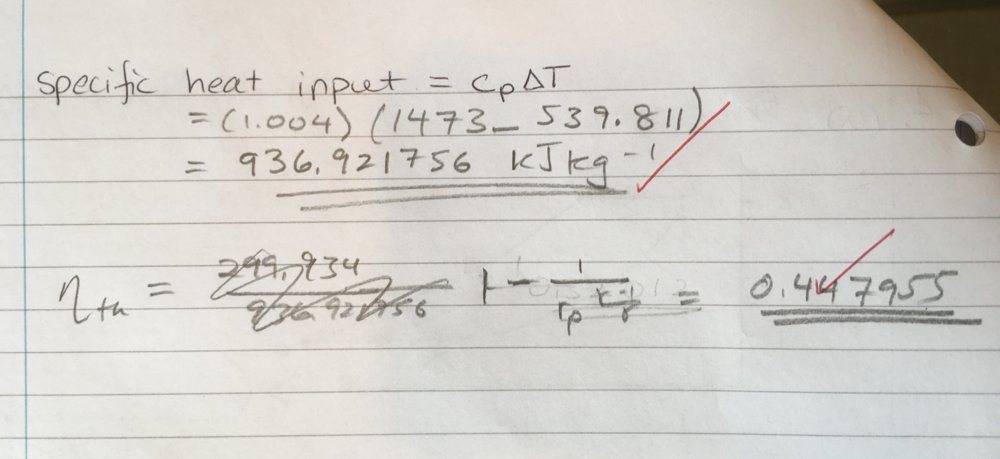 Specific heat input = CpΔT
= (1.004) (1473 - 539.811)
= 936.921756 kJ kg⁻¹
ηth = 299.934 / 936.921756 1 - 1 / rp = 0.447955